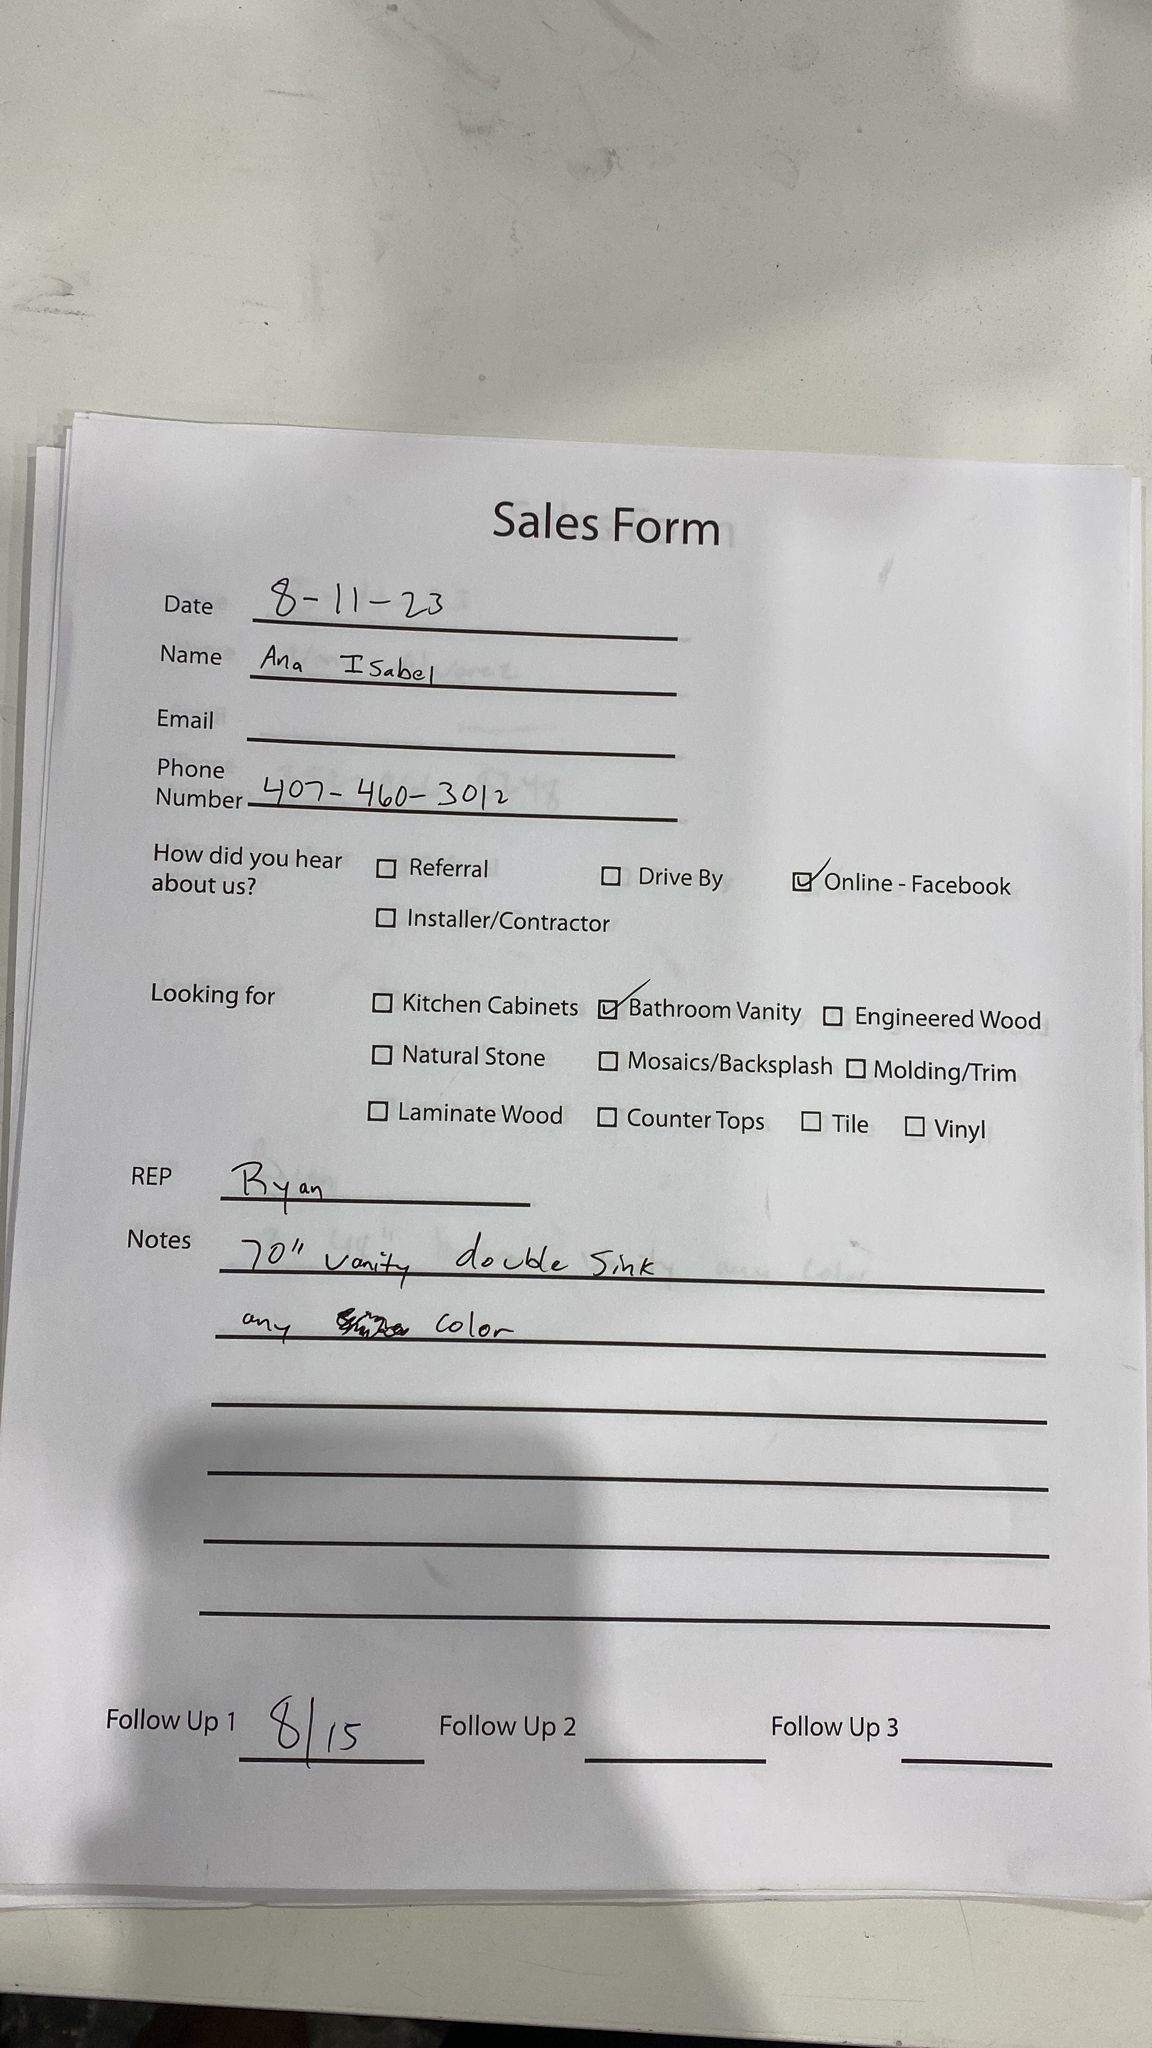 Sales Form
Date 8-11-23
Name Ana Isabel
Email
Phone
Number 407-460-3012
How did you hear
about us?
Referral Drive By Online - Facebook
Installer/Contractor
Looking for
Kitchen Cabinets Bathroom Vanity Engineered Wood
Natural Stone Mosaics/Backsplash Molding/Trim
Laminate Wood Counter Tops Tile Vinyl
REP Ryan
Notes 70" vanity double sink
any color
Follow Up 1 8/15 Follow Up 2 Follow Up 3